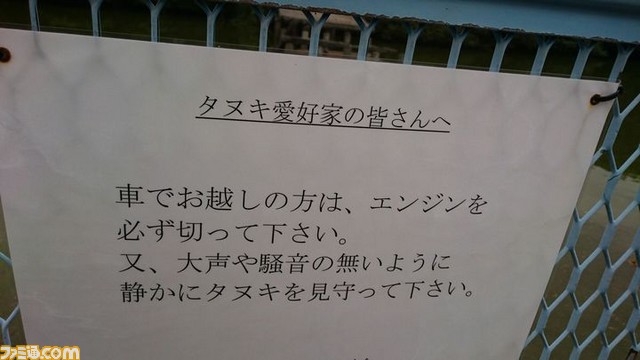 タヌキ愛好家の皆さんへ
車でお越しの方は、エンジンを
必ず切って下さい。
又、大声や騒音の無いように
静かにタヌキを見守って下さい。
ファミ通.com